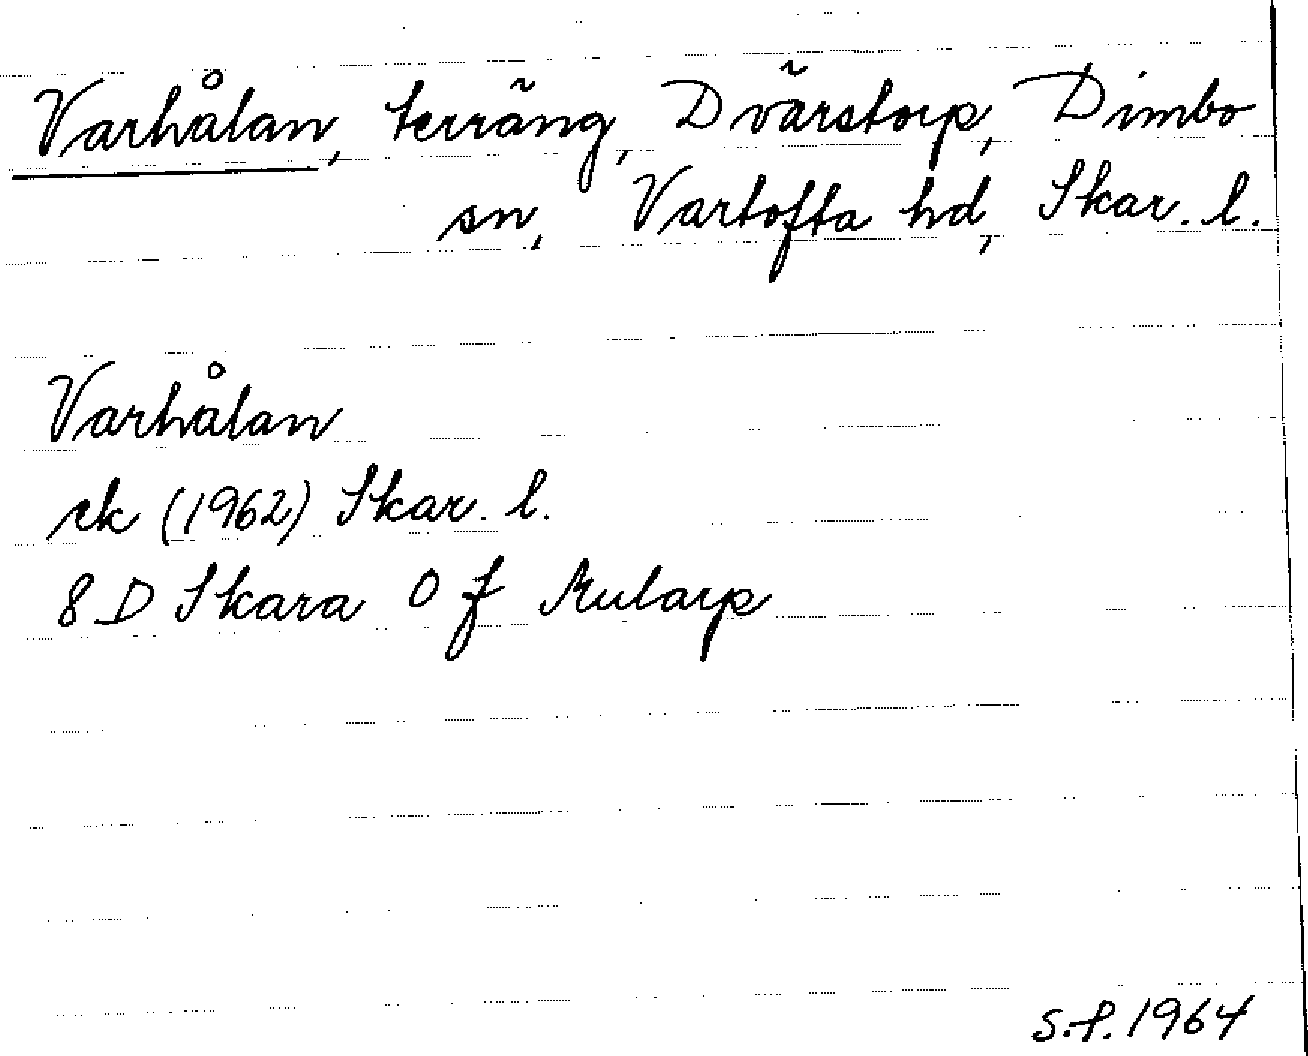 Varhålan, terräng, Dvärstorp, Dimbo
sn, Vartofta hd, Skar. l.
Varhålan
ek (1962) Skar. l.
8 D Skara 0 f Mularp
S.f. 1964